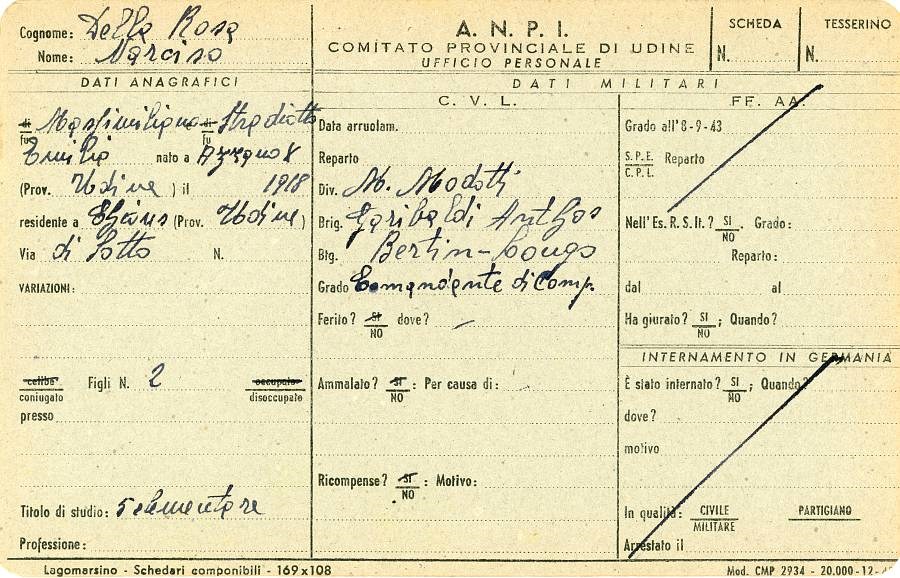 Cognome: Della Rosa
Nome: Narciso
A. N. P. I.
COMITATO PROVINCIALE DI UDINE
UFFICIO PERSONALE
SCHEDA
N.
TESSERINO
N.
DATI ANAGRAFICI
di
fu Massimiliano di
fu Stradiotto
Emilia nato a Azzano X
(Prov. Udine) il 1918
residente a (Prov. Udine)
Via di Sotto N.
VARIAZIONI:
celibe
coniugato Figli N. 2 occupato
disoccupato
presso
Titolo di studio: 5 elementare
Professione:
DATI MILITARI
C. V. L.
Data arruolam.
Reparto
Div. M. Modotti
Brig. Garibaldi Anthos
Btg. Bertin-Congo
Grado Comandante di Comp.
Ferito? SI
NO dove? –
Ammalato? SI
NO : Per causa di:
Ricompense? SI
NO : Motivo:
FF. AA.
Grado all'8-9-43
S.P.E.
C.P.L. Reparto
Nell'Es. R. S. It.? SI
NO Grado:
Reparto:
dal al
Ha giurato? SI
NO ; Quando?
INTERNAMENTO IN GERMANIA
È stato internato? SI
NO ; Quando?
dove?
motivo
In qualità: CIVILE
MILITARE PARTIGIANO
Arrestato il
Lagomarsino - Schedari componibili - 169x108
Mod. CMP 2934 - 20.000-12-